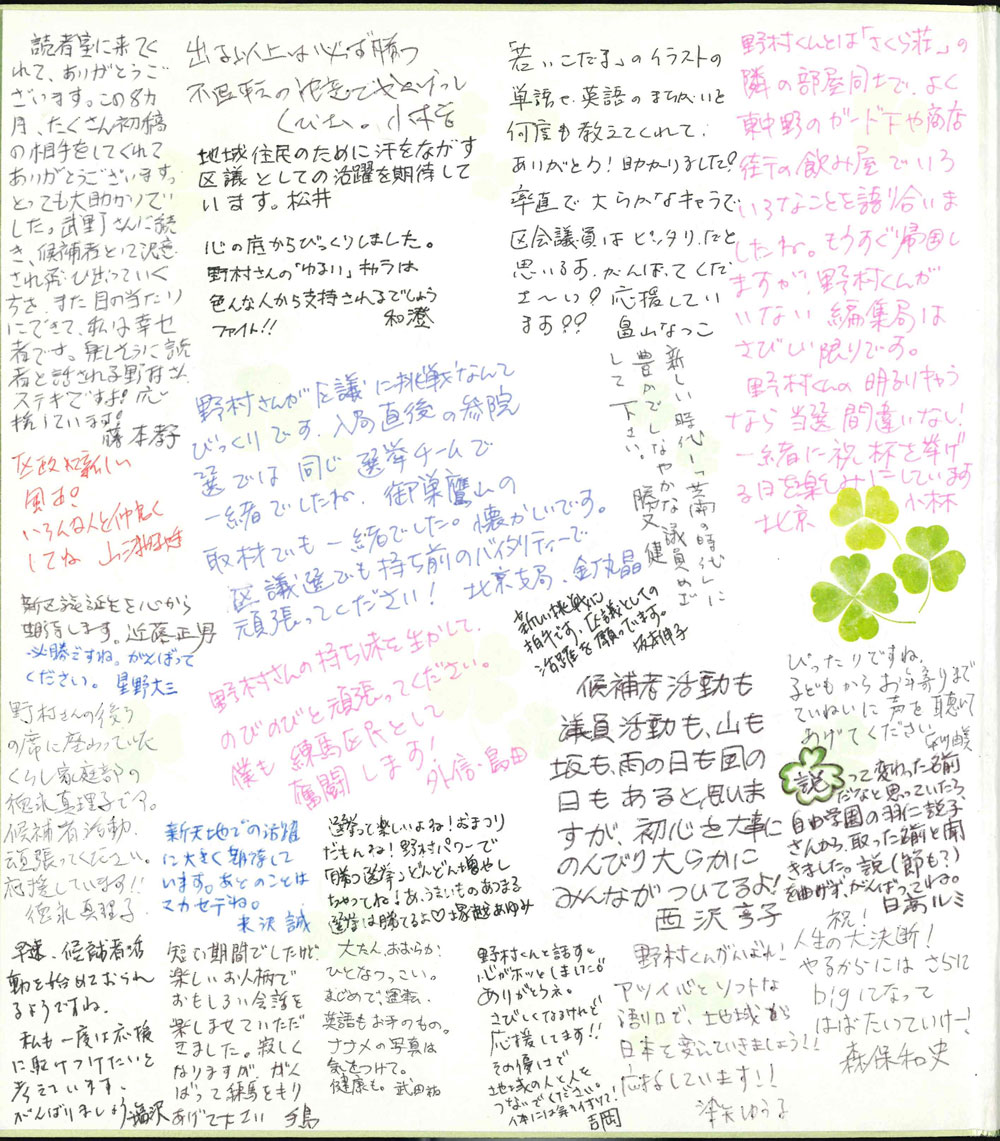 読者室に来てく
れて、ありがとうご
ざいます。この8カ
月、たくさん初稿
の相手をしてくれて
ありがとうございます。
とっても大助かりで
した。武野さんに続
き、候補者として決意
され飛び出っていく
方を、また目の当たり
にできて、私は幸せ
者です。楽しそうに読
者と話される野村さん
ステキですよ！応
援しています！
藤本孝子
出る以上は必ず勝つ
不退転の決意で
地域住民のために汗をながす
区議としての活躍を期待して
います。松井
心の底からびっくりしました。
野村さんの「ゆるい」キャラは
色んな人から支持されるでしょう
ファイト!!
和澄
「若いこだま」のイラストの
単語や英語のまちがいを
何度も教えてくれて、
ありがとう！助かりました！
率直で大らかなキャラで
区会議員はピッタリだと
思いるす。がんばってくだ
さ〜い！応援してい
ます??
畠山なつこ
野村くんとは「さくら荘」の
隣の部屋同士で、よく
東中野のガード下や商店
街の飲み屋でいろ
いろなことを語り合いま
したね。もうすぐ帰国し
ますが、野村くんが
いない編集局は
さびしい限りです。
野村くんの明るいキャラ
なら当選間違いなし！
一緒に祝杯を挙げ
る日を楽しみにしています
北京 小林
野村さんが区議に挑戦なんて
びっくりです。入局直後の参院
選では同じ選挙チームで
一緒でしたね。御巣鷹山の
取材でも一緒でした。懐かしいです。
区議選でも持ち前のバイタリティーで
頑張ってください！ 北京支局・釘丸晶
新しい時代「芸術の時代」に
豊かでしなやかな議員めざ
して下さい。 勝又 健
区政に新しい
風を！
いろんな人と仲良く
してね
新区議誕生を心から
期待します。近藤正男
必勝ですね。がんばって
ください。 星野大三
新しい挑戦に
拍手です。区議としての
活躍を願っています。
野村さんの持ち味を生かして、
のびのびと頑張ってください。
僕も練馬区民として
奮闘します！
外信・島田
野村さんの後ろ
の席に座っていた
くらし家庭部の
徳永真理子です。
候補者活動、
頑張ってください。
応援しています!!
徳永真理子
新天地での活躍
に大きく期待して
います。あとのことは
マカセテね。
米沢 誠
選挙って楽しいよね！おまつり
だもんね！野村パワーで
「勝つ選挙」どんどん増やし
ちゃってね！あ、うまいものあつまる
選挙は勝てるよ♡塚越あゆみ
候補者活動も
議員活動も、山も
坂も、雨の日も風の
日もあると思いま
すが、初心を大事に
のんびり大らかに
みんながついてるよ！
西沢亨子
ぴったりですね。
子どもからお年寄りまで
ていねいに声を聴いて
あげてください。
説
って変わった名前
だなと思っていたら、
自由学園の羽仁説子
さんから、取った名前と聞
きました。説(節も?)
を曲げず、がんばってね。
日高ルミ
早速、候補者活
動を始めておられ
るようですね。
私も一度は応援
に駆けつけたいと
考えています。
がんばりましょう 塩沢
短い期間でしたけど
楽しいお人柄で
おもしろい会話を
楽しませていただ
きました。寂しく
なりますが、がん
ばって練馬をもり
あげて下さい 手島
大たん、おおらか、
ひとなつっこい。
まじめで運転、
英語もお手のもの。
ナナメの写真は
気をつけて。
健康も。 武田祐
野村くんと話すと
心がホッとしましたが
ありがとうネ。
さびしくなるけれど
応援してます!!
その優しさで
地域の人と人を
つないでください。
体には気を付けて！
吉岡
野村くんがんばれ！
アツイ心とソフトな
語り口で、地域から
日本を変えていきましょう!!
応援しています!!
染矢ゆう子
祝！
人生の大決断！
やるからには さらに
bigになって
はばたいていけー！
森保和史